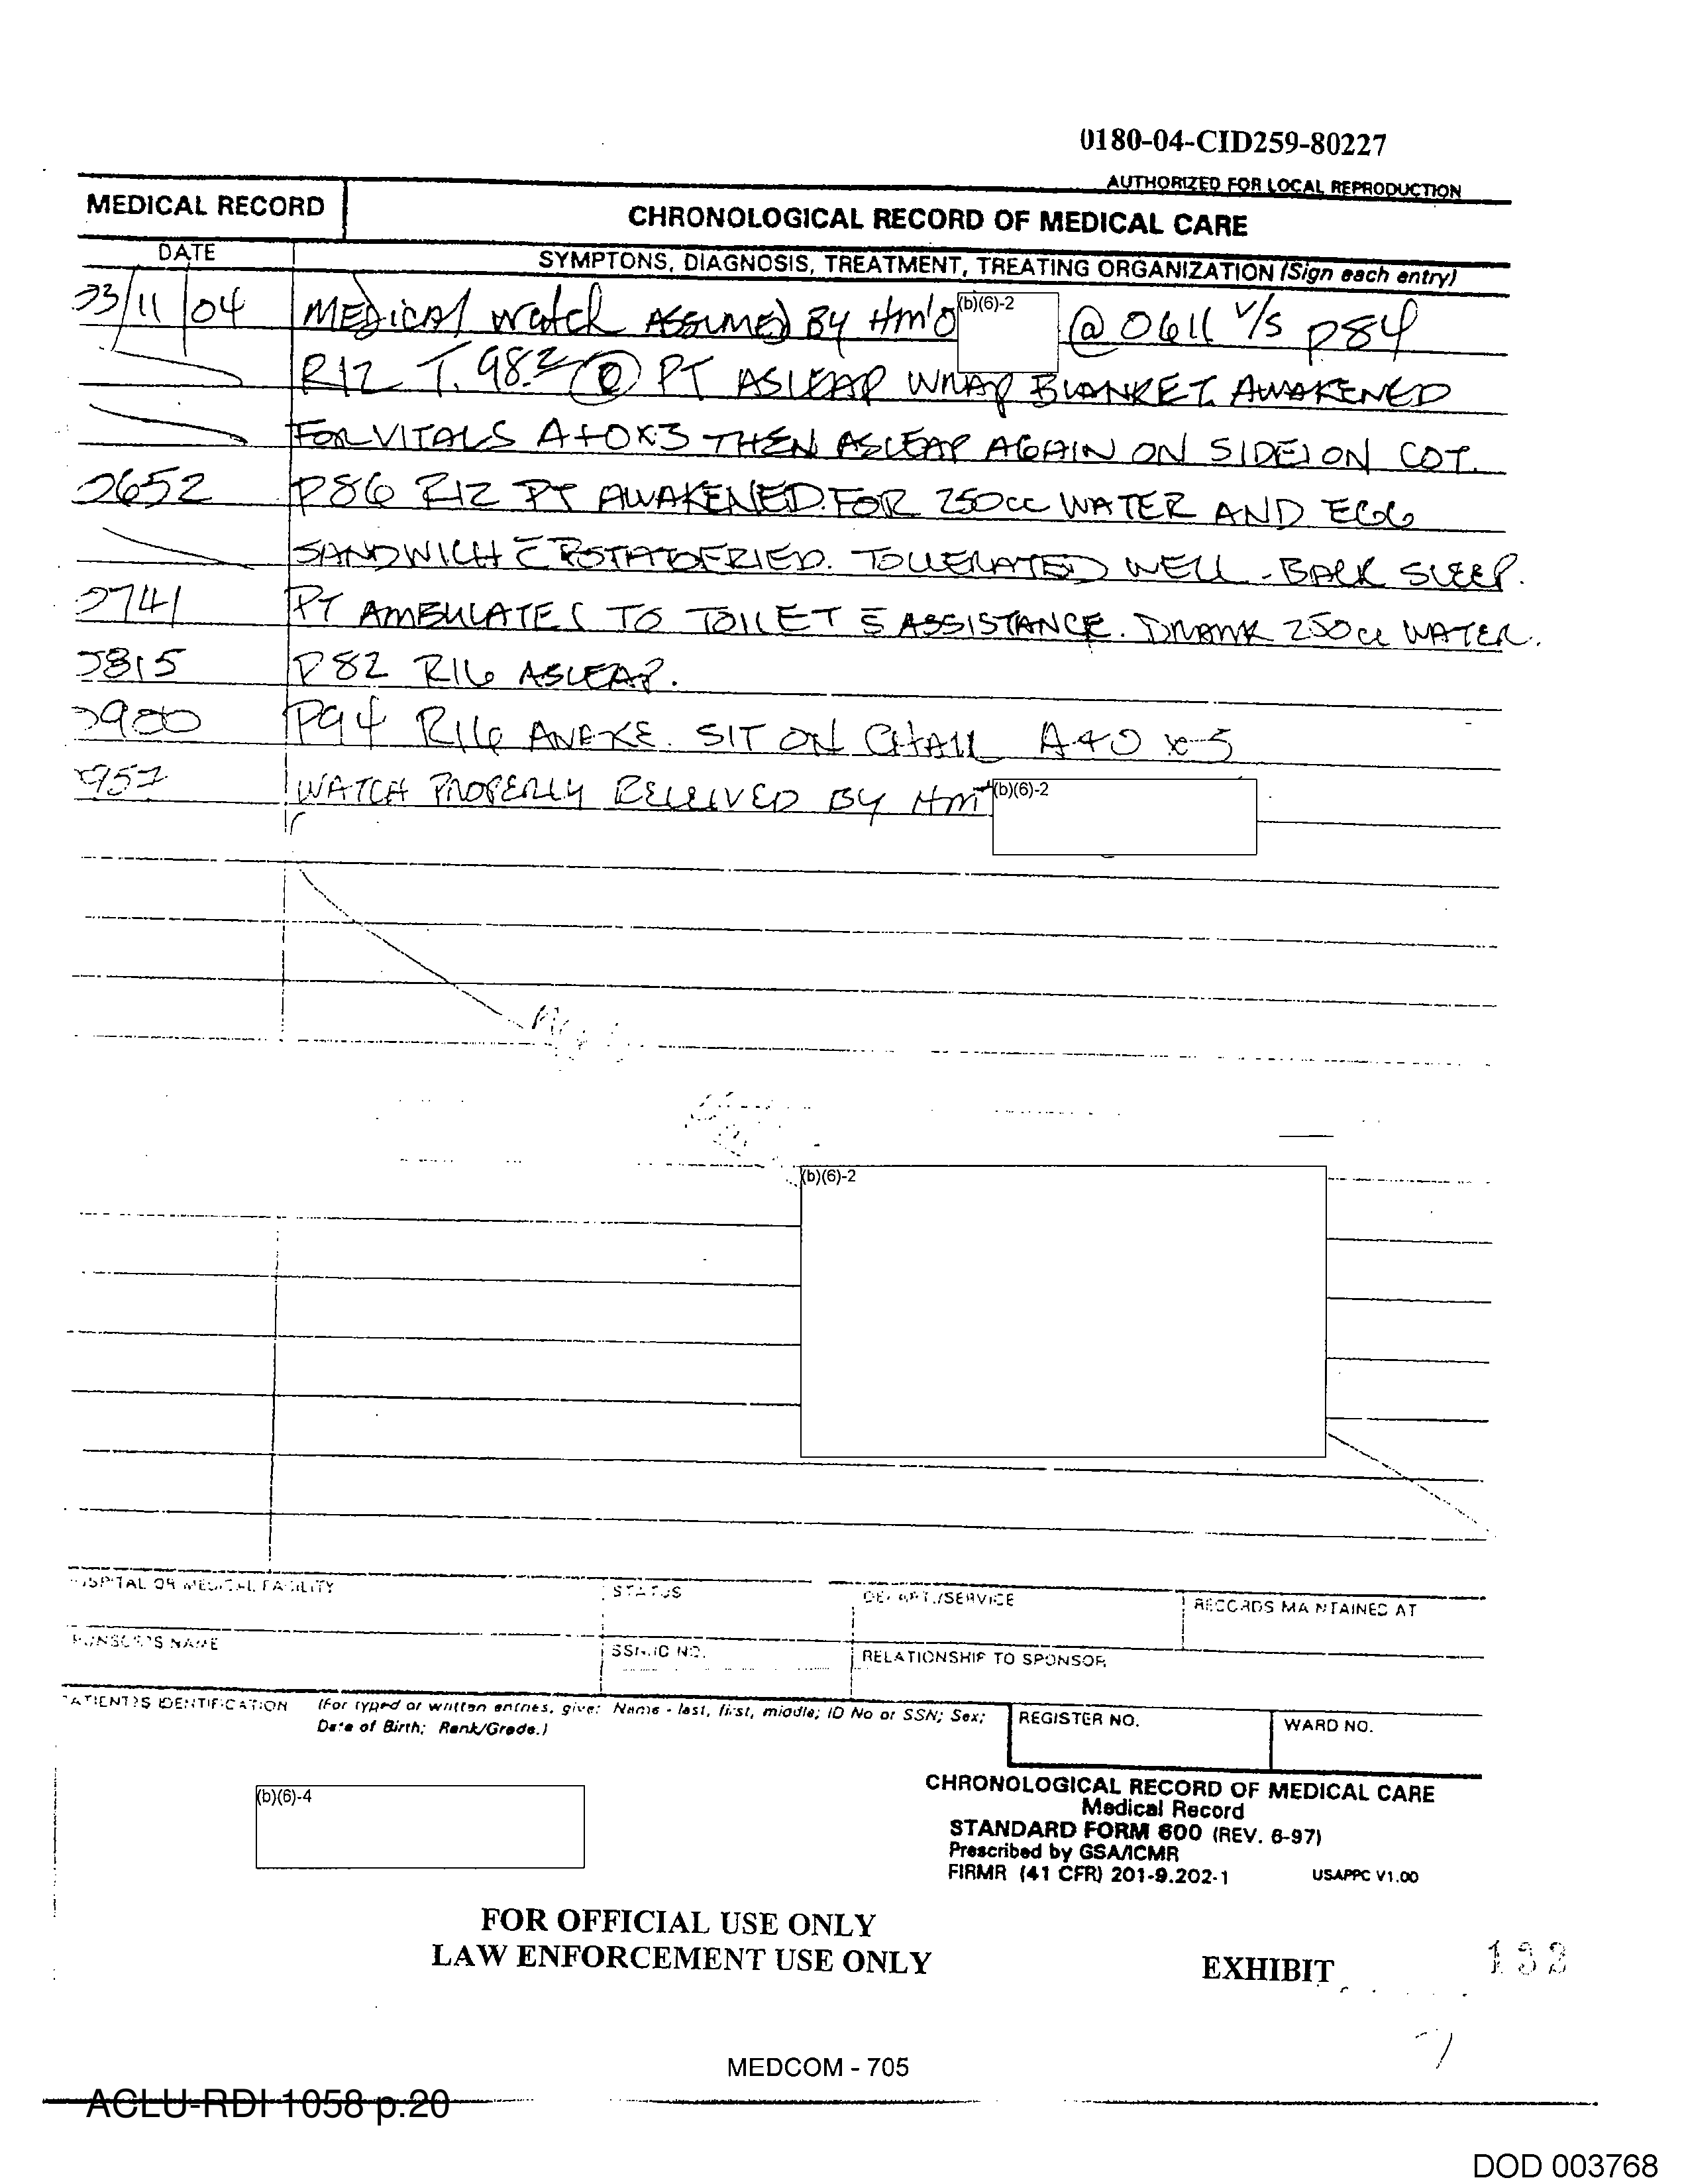 0180-04-CID259-80227
AUTHORIZED FOR LOCAL REPRODUCTION
MEDICAL RECORD
CHRONOLOGICAL RECORD OF MEDICAL CARE
DATE
SYMPTONS, DIAGNOSIS, TREATMENT, TREATING ORGANIZATION (Sign each entry)
23/11/04 MEDICAL WATCH ASSUMED BY HM'O (b)(6)-2 @ 0611 V/S P84
R12 T. 98.2 PT ASLEAP WRAP BLANKET. AWAKENED
FOR VITALS A+OX3 THEN ASLEAP AGAIN ON SIDE ON COT.
0652 P86 R12 PT AWAKENED FOR 250cc WATER AND EGG
SANDWICH c̄ POTATOFRIED. TOLLERATED WELL - BACK SLEEP.
0741 PT AMBULATES TO TOILET s̄ ASSISTANCE. DRANK 250cc WATER.
0815 P82 R16 ASLEAP.
0900 P94 R16 AWAKE. SIT ON CHAIR A+O x 3
0957 WATCH PROPERLY RECEIVED BY HM (b)(6)-2
(b)(6)-2
HOSPITAL OR MEDICAL FACILITY
STATUS
DEPART./SERVICE
RECORDS MAINTAINED AT
SPONSOR'S NAME
SSN/ID NO.
RELATIONSHIP TO SPONSOR
PATIENT'S IDENTIFICATION
(For typed or written entries, give: Name - last, first, middle; ID No or SSN; Sex;
Date of Birth; Rank/Grade.)
REGISTER NO.
WARD NO.
(b)(6)-4
CHRONOLOGICAL RECORD OF MEDICAL CARE
Medical Record
STANDARD FORM 600 (REV. 6-97)
Prescribed by GSA/ICMR
FIRMR (41 CFR) 201-9.202-1
USAPPC V1.00
FOR OFFICIAL USE ONLY
LAW ENFORCEMENT USE ONLY
EXHIBIT
MEDCOM - 705
ACLU-RDI 1058 p.20
DOD 003768